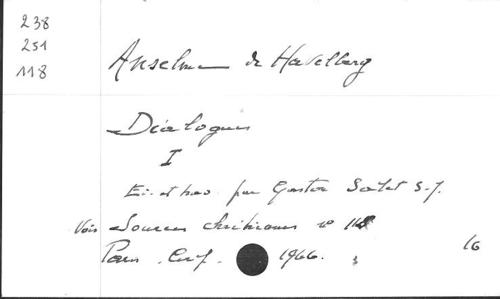 238
251
118
Anselme de Havelberg
Dialogues
I
Ed. et trad. par Gaston Salet S.J.
Voir Sources chrétiennes n° 118
Paris. Cerf. 1966.
16